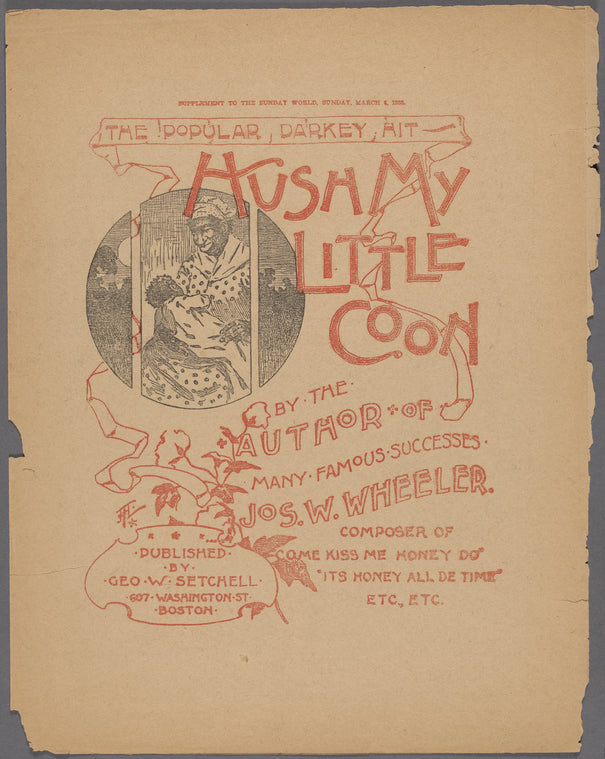 SUPPLEMENT TO THE SUNDAY WORLD, SUNDAY, MARCH 4,
THE POPULAR DARKEY HIT
HUSH MY
LITTLE
COON
BY · THE ·
AUTHOR · OF
MANY · FAMOUS · SUCCESSES ·
JOS. W. WHEELER.
COMPOSER OF
"COME KISS ME HONEY DO"
"ITS HONEY ALL DE TIME"
ETC., ETC.
· PUBLISHED ·
· BY ·
· GEO · W · SETCHELL ·
· 607 · WASHINGTON · ST ·
· BOSTON ·